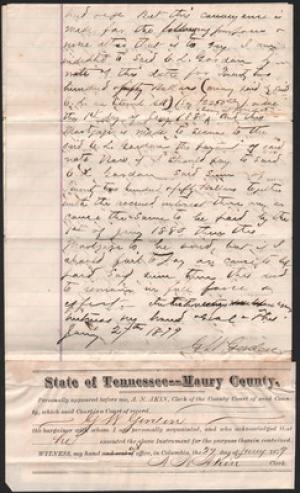 and use But this conveyance is
made for the following purposes &
none else that is to say. I am
indebted to said C. L. Gordon by
note of this date for
hundred & fifty Dollars
the 1st day of Jany 188 And this
Mortgage is made to secure to the
said C. L. Gordon the payment of said
note Now if I should pay to said
C. L. Gordon said Sum of
two hundred & fifty Dollars together
with the accrued interest thereon or
cause the same to be paid by the
1st of Jany 1880 then this
Mortgage to be void, but if I
should fail to pay or cause to be
paid said sum then this deed
to remain in full force &
effect. In
witness my hand & seal this
Jany 27th 1879
State of Tennessee--Maury County.
Personally appeared before me, A. N. AKIN, Clerk of the County Court of said Coun-
ty, which said Court is a Court of record,
the bargainor with whom I am personally acquainted, and who acknowledged that
he executed the above Instrument for the purpose therein contained.
WITNESS, my hand at office, in Columbia, the day of Jany 1879
A. N. Akin Clerk